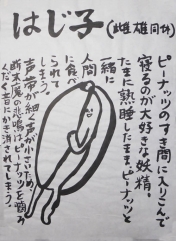 はじ子
(雌雄同体)
ピーナッツのすき間に入りこんで
寝るのが大好きな妖精。
たまに熟睡したまま。ピーナッツと
一緒に
人間に食べ
られて
しまう。
声帯が細く声が小さいため、
断末魔の悲鳴はピーナッツを齧る
くだく音にかき消されてしまう。